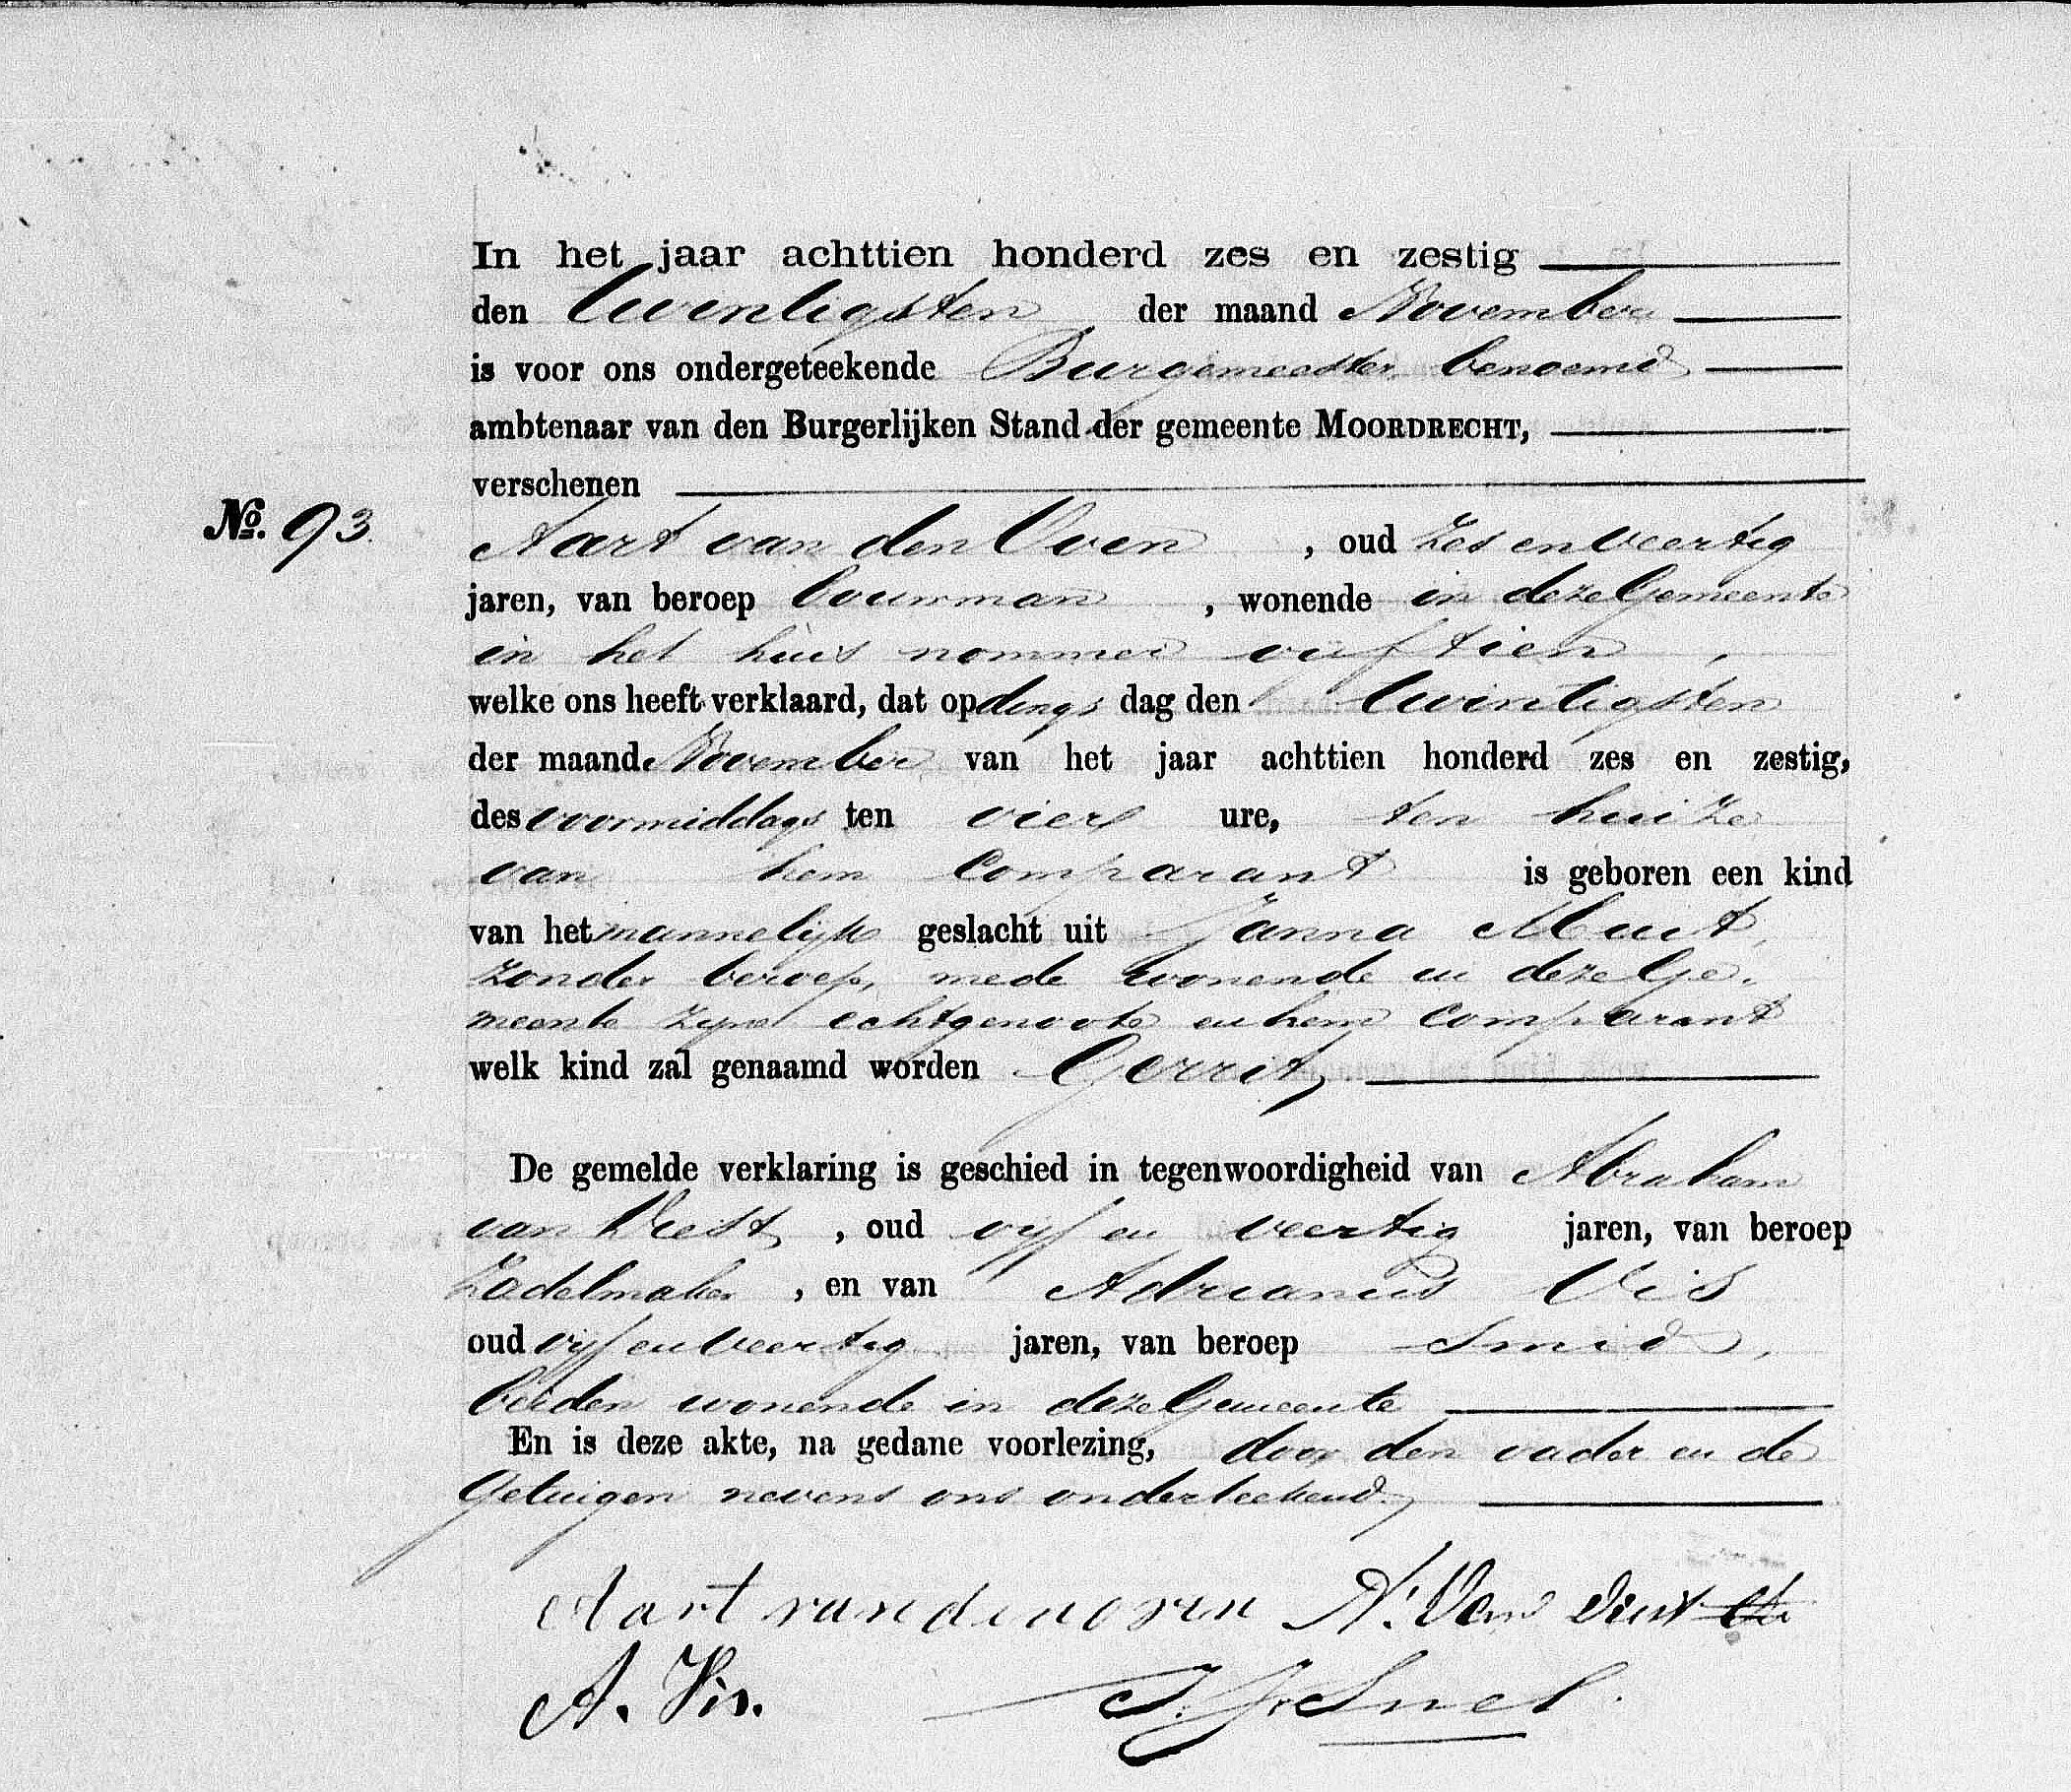 In het jaar achttien honderd zes en zestig
den twintigsten der maand November
is voor ons ondergeteekende Burgemeester benoemd
ambtenaar van den Burgerlijken Stand der gemeente MOORDRECHT,
verschenen
No. 93.
Aart van den Oven, oud zes en veertig
jaren, van beroep bouwman, wonende in deze Gemeente
in het huis nommer vijftien,
welke ons heeft verklaard, dat op dings dag den twintigsten
der maand November van het jaar achttien honderd zes en zestig,
des voormiddags ten vier ure, ten huize
van hem Comparant is geboren een kind
van het mannelijk geslacht uit Janna Muit,
zonder beroep, mede wonende in deze Ge-
meente zijne echtgenoote en hem Comparant
welk kind zal genaamd worden Gerrit,
De gemelde verklaring is geschied in tegenwoordigheid van Abraham
van, oud vijf en veertig jaren, van beroep
Zadelmaker, en van Adrianus Vis
oud vijf en veertig jaren, van beroep Smid,
beiden wonende in deze Gemeente
En is deze akte, na gedane voorlezing, door den vader en de
Getuigen nevens ons onderteekend.
Aart van den oven A. Van
A. Vis. Snel.